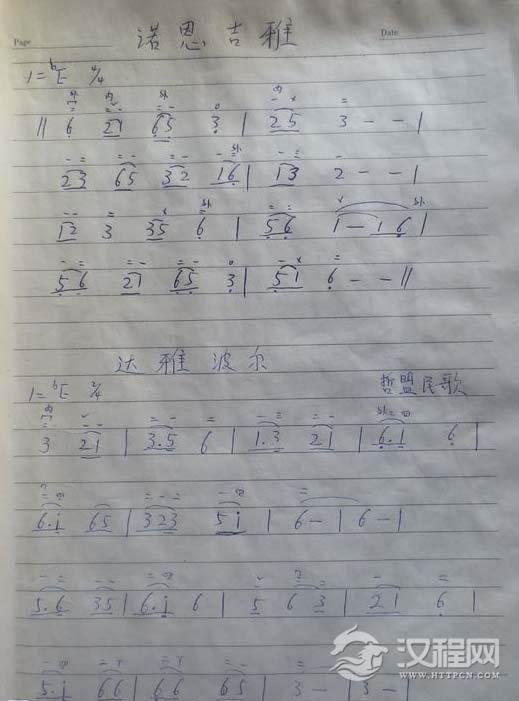 Page
诺恩吉雅
Date
1=bE 4/4
‖ 6 21 65 3 | 25 3 - - |
23 65 32 16 | 13 2 - - |
12 3 35 6 | 56 1 - 16 |
56 21 65 3 | 51 6 - - ‖
达雅波尔
1=bE 2/4 哲盟民歌
3 21 | 3.5 6 | 1.3 21 | 6.1 6 |
6.i 65 | 323 5i | 6 - | 6 - |
5.6 35 | 6.i 6 | 5 63 | 21 6 |
5.i 66 | 66 65 | 3 - | 3 - |
汉程网
WWW.HTTPCN.COM